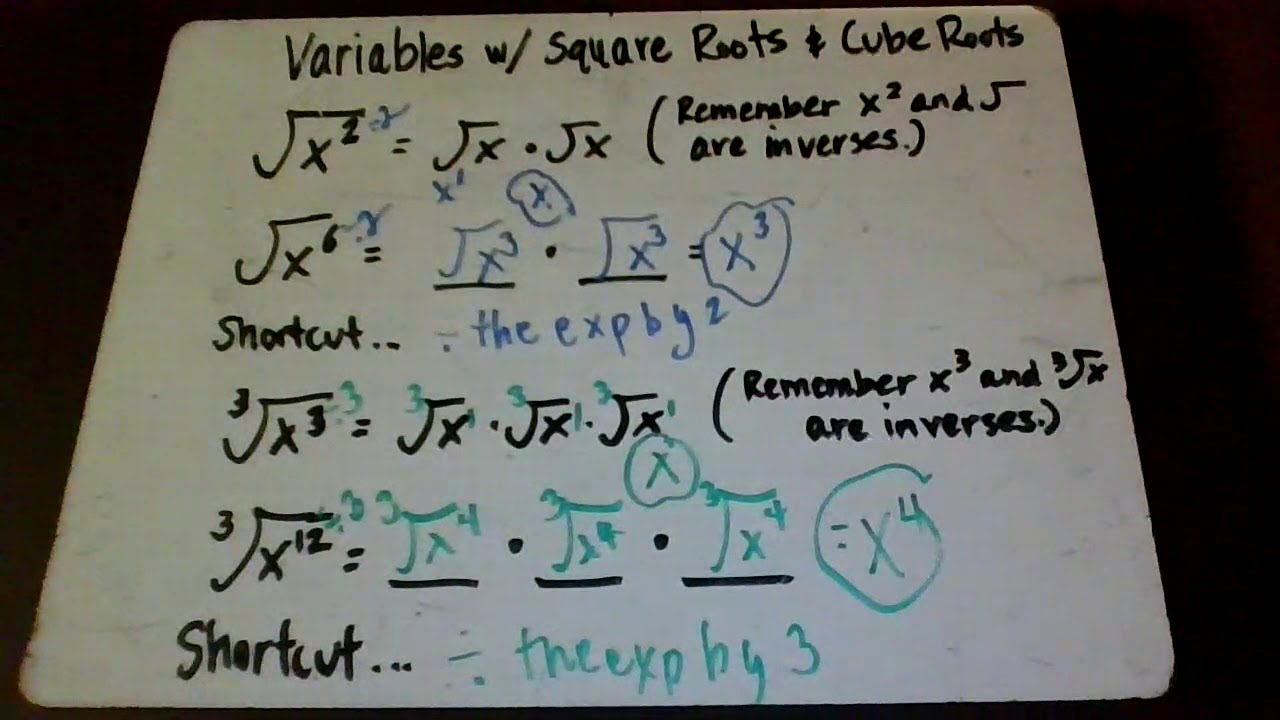 Variables w/ Square Roots & Cube Roots
√x² ÷2 = √x · √x (Remember x² and √
are inverses.)
x¹ x
√x⁶ ÷2 = √x³ · √x³ = x³
Shortcut... ÷ the exp by 2
³√x³ ÷3 = ³√x¹ · ³√x¹ · ³√x¹ (Remember x³ and ³√x
are inverses.)
x
³√x¹² ÷3 = ³√x⁴ · ³√x⁴ · ³√x⁴ = x⁴
Shortcut... ÷ the exp by 3